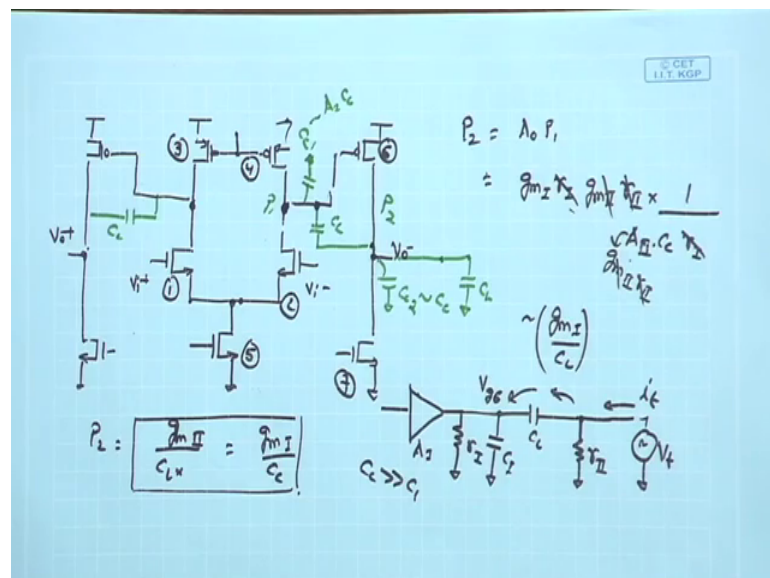 © CET
I.I.T. KGP
C₁ ~ A₂ C_c
③
④
⑥
P₁
P₂
C_c
C_c
V₀+
V₀-
Vi+
①
Vi-
②
C₂ ~ C_c
C_L
⑤
⑦
P₂ = A₀ P₁
= g_mI r_I g_mII r_II × 1
A_II . C_c r_I
g_mII r_II
~ (g_mI / C_c)
P₂ = g_mII / C_L* = g_mI / C_c
C_c >> C₁
A_I
r_I
C_I
V_g6
C_c
r_II
i_t
V_t